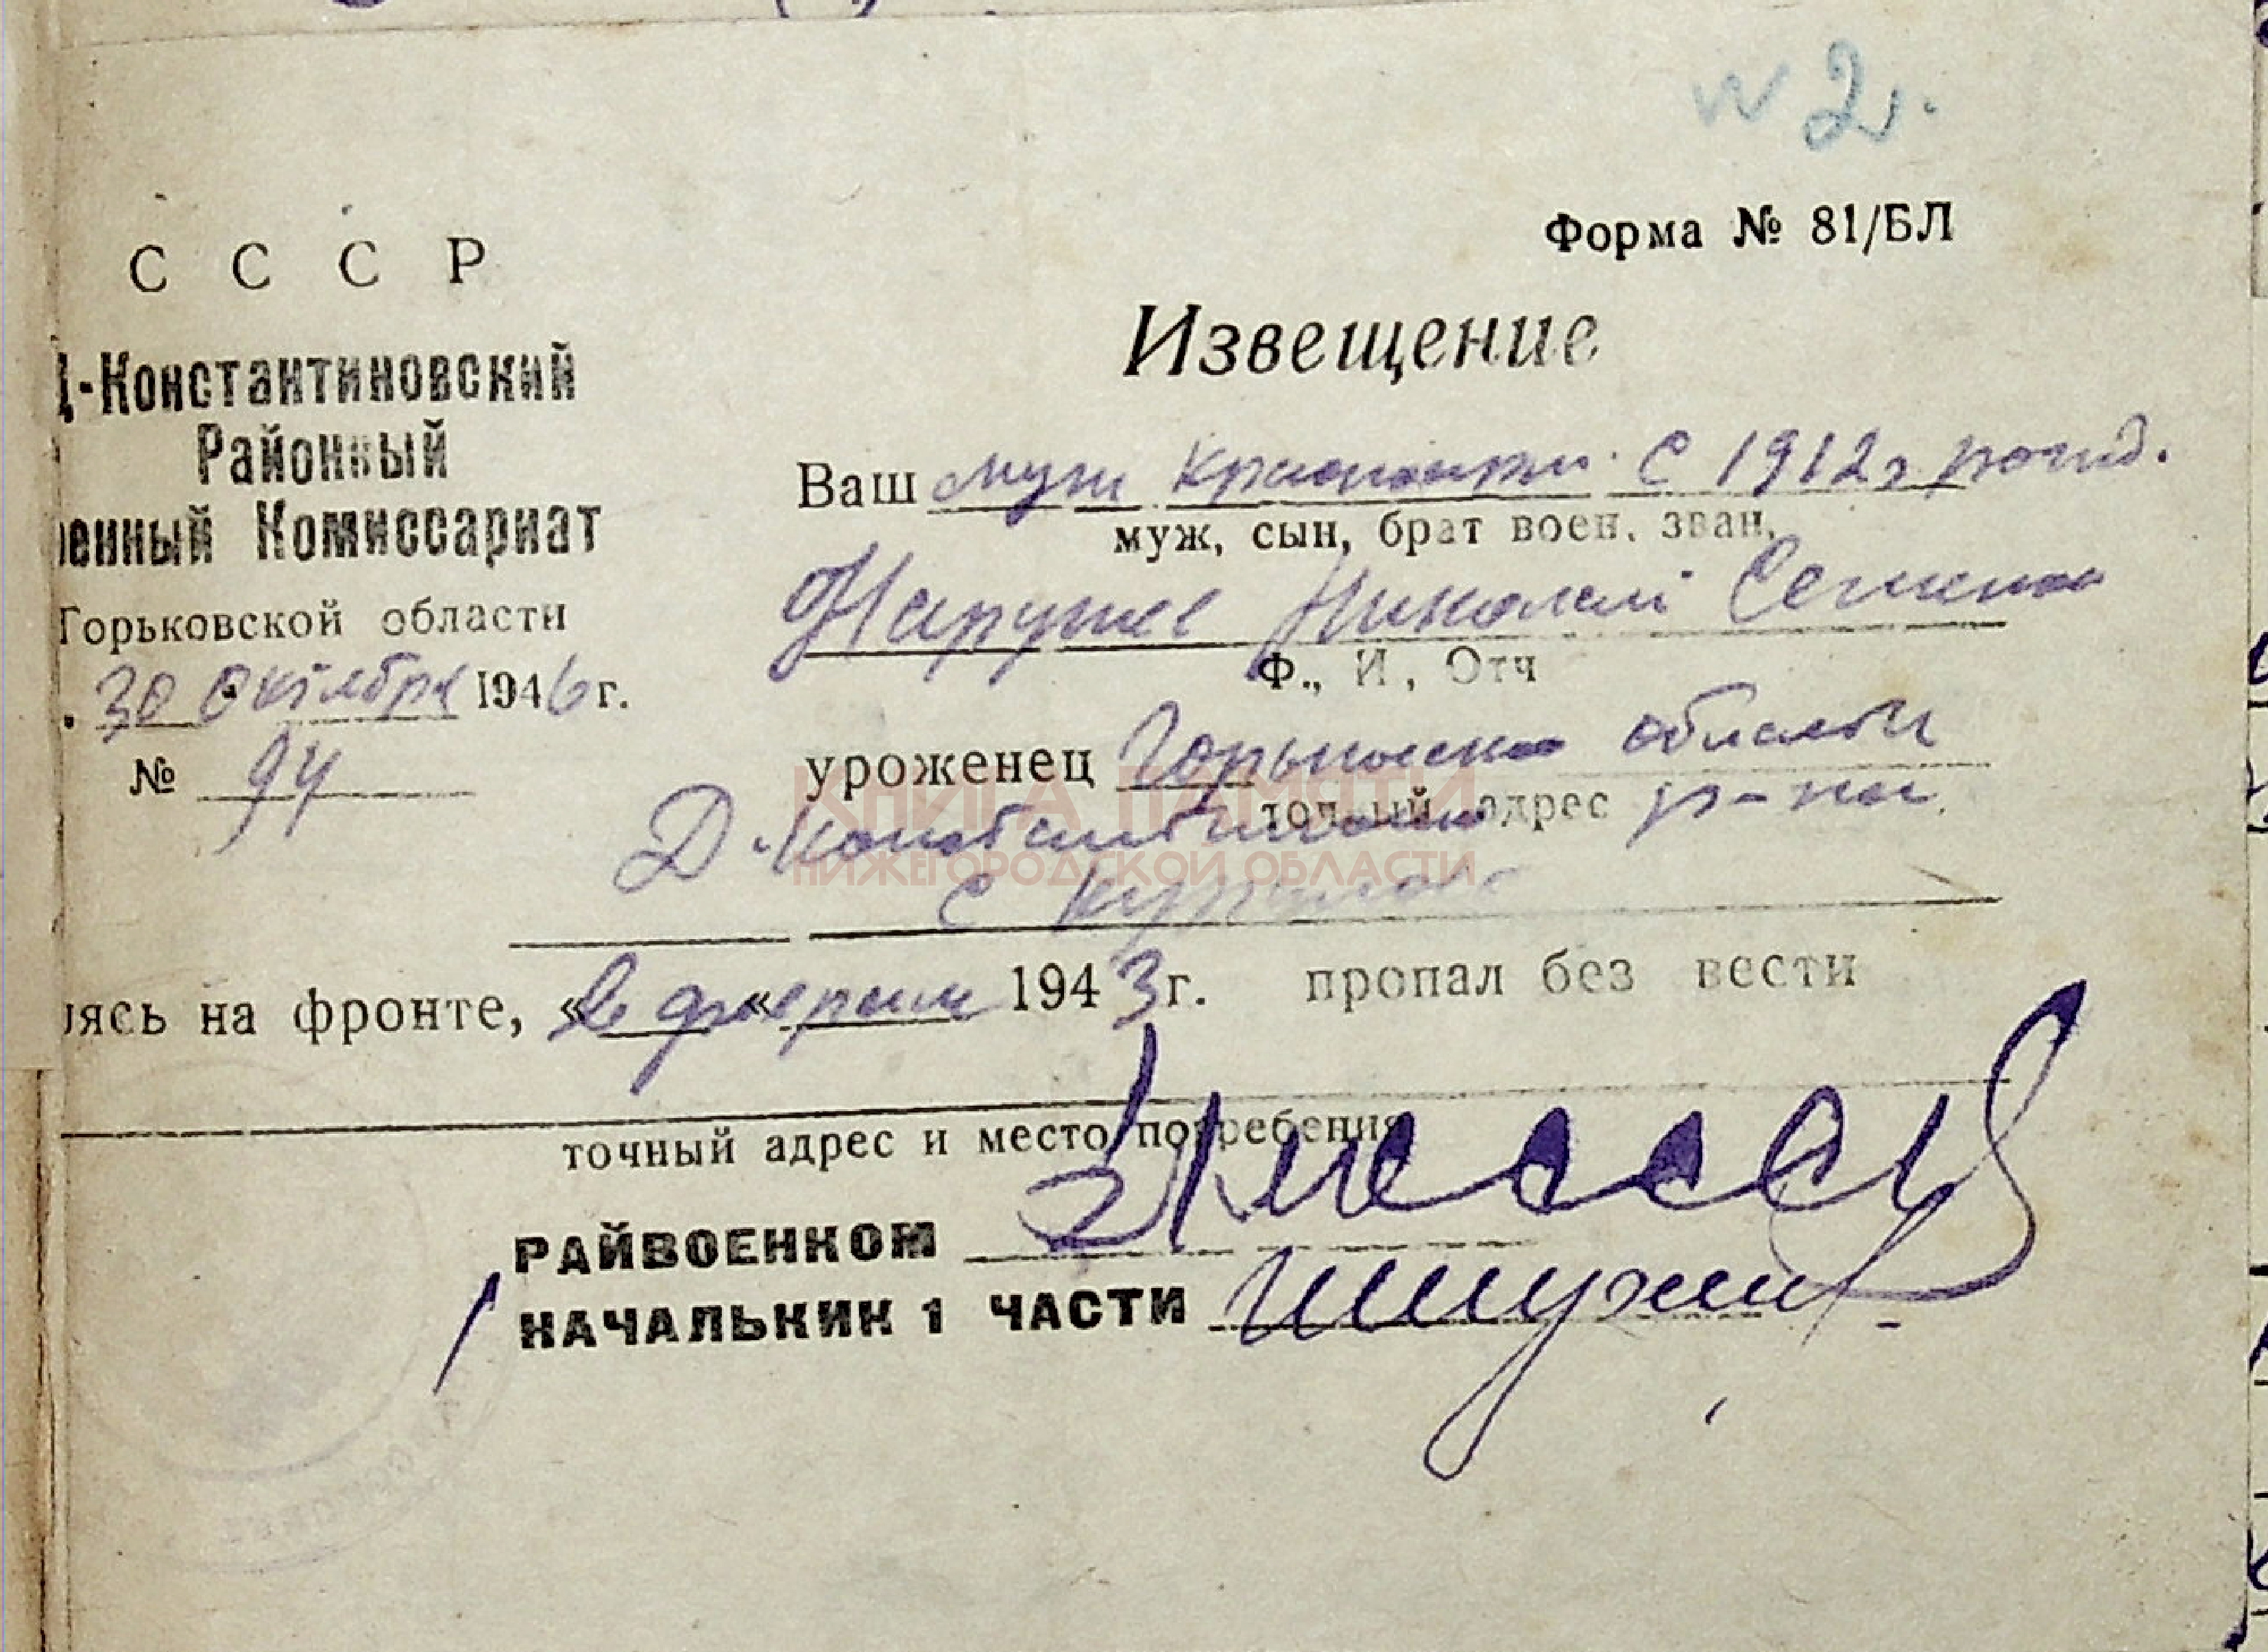 № 2.
Форма № 81/БЛ
С С С Р
Д-Константиновский
Районный
енный Комиссариат
Горьковской области
30 октября 1946 г.
№ 94
Извещение
Ваш муж красноарм. с 1912 г рожд.
муж, сын, брат воен. зван.
Николай Семенов
Ф., И., Отч
уроженец Горьковской области
точный адрес
Д-Константиновско р-на
с
КНИГА ПАМЯТИ
НИЖЕГОРОДСКОЙ ОБЛАСТИ
ясь на фронте, « в « феврале 1943 г. пропал без вести
точный адрес и место погребения
РАЙВОЕНКОМ
НАЧАЛЬНИК 1 ЧАСТИ